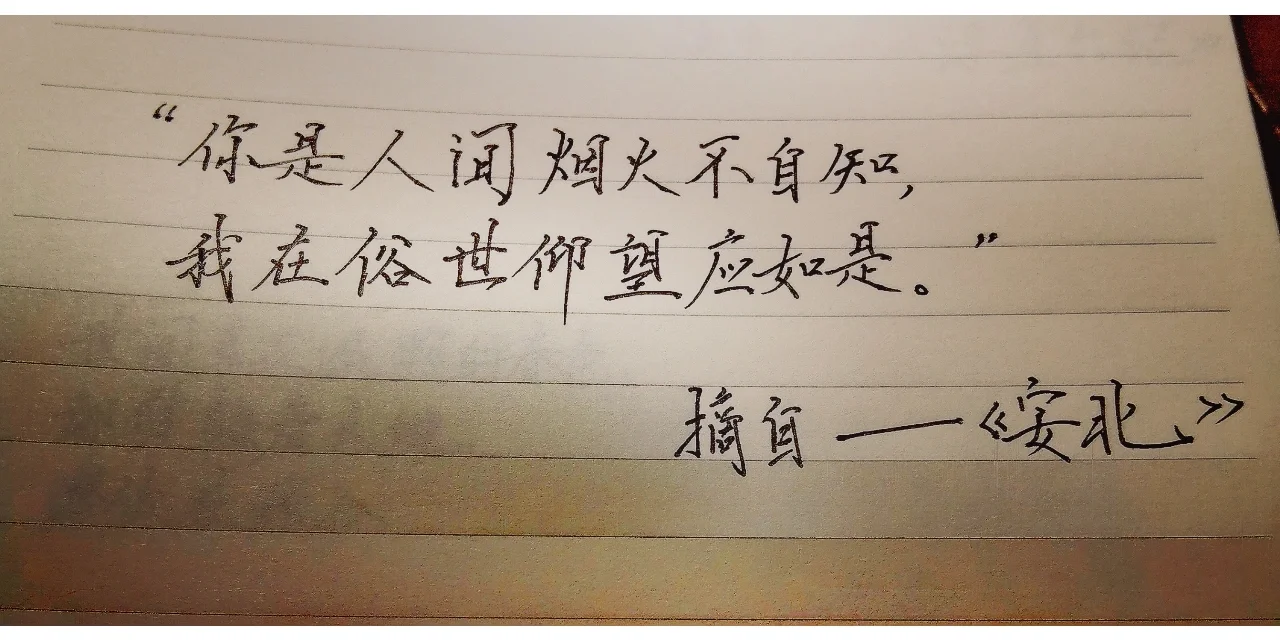 “你是人间烟火不自知,
我在俗世仰望应如是。”
摘自——《安北》